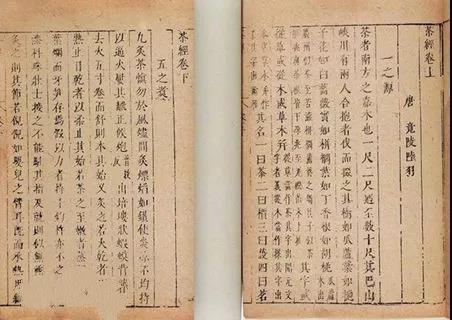 茶經卷上
唐 竟陵陸羽
一之源
茶者南方之嘉木也一尺二尺迺至數十尺其巴山
峽川有兩人合抱者伐而掇之其樹如瓜蘆葉如梔
子花如白薔薇實如栟櫚葉如丁香根如胡桃
其字或
從草或從木或草木并
其名一曰茶二曰檟三曰蔎四曰茗
茶經卷下
五之煮
凡炙茶慎勿於風燼間炙熛焰如鑽使炎涼不均持
以逼火屢其飜正候炮出培塿狀蝦蟆背
去火五寸卷而舒則本其始又炙之若火乾者
止日乾者以柔止其始若茶之至嫩者
葉爛而牙笋存焉假以力者持千鈞杵亦不之
漆科珠壯士接之不能駐其指及就則似無
炙之則其節若倪倪如嬰兒之臂耳既而承熱用